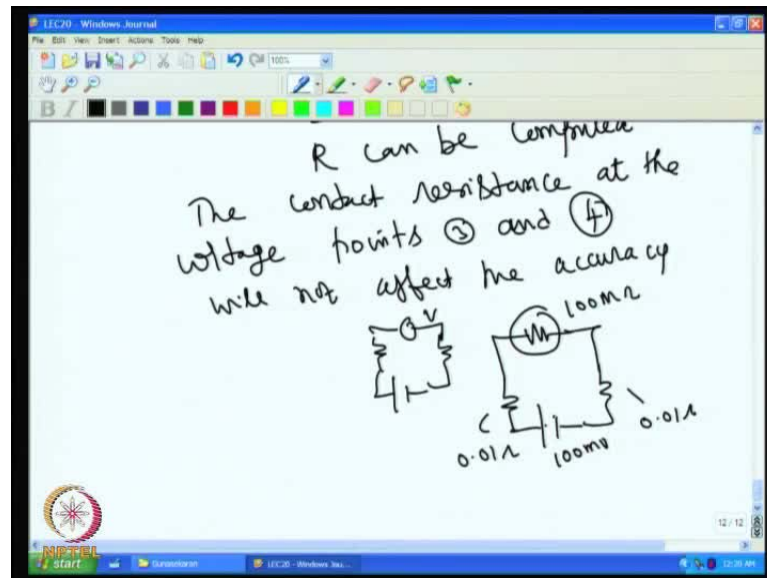 LEC20 - Windows Journal
File Edit View Insert Actions Tools Help
100%
B I
R can be computed
The contact resistance at the
voltage points ③ and ④
will not affect the accuracy
V
100MΩ
0.01Ω
100mV
0.01Ω
12 / 12
NPTEL
start Gunasekaran LEC20 - Windows Jou... 12:20 AM